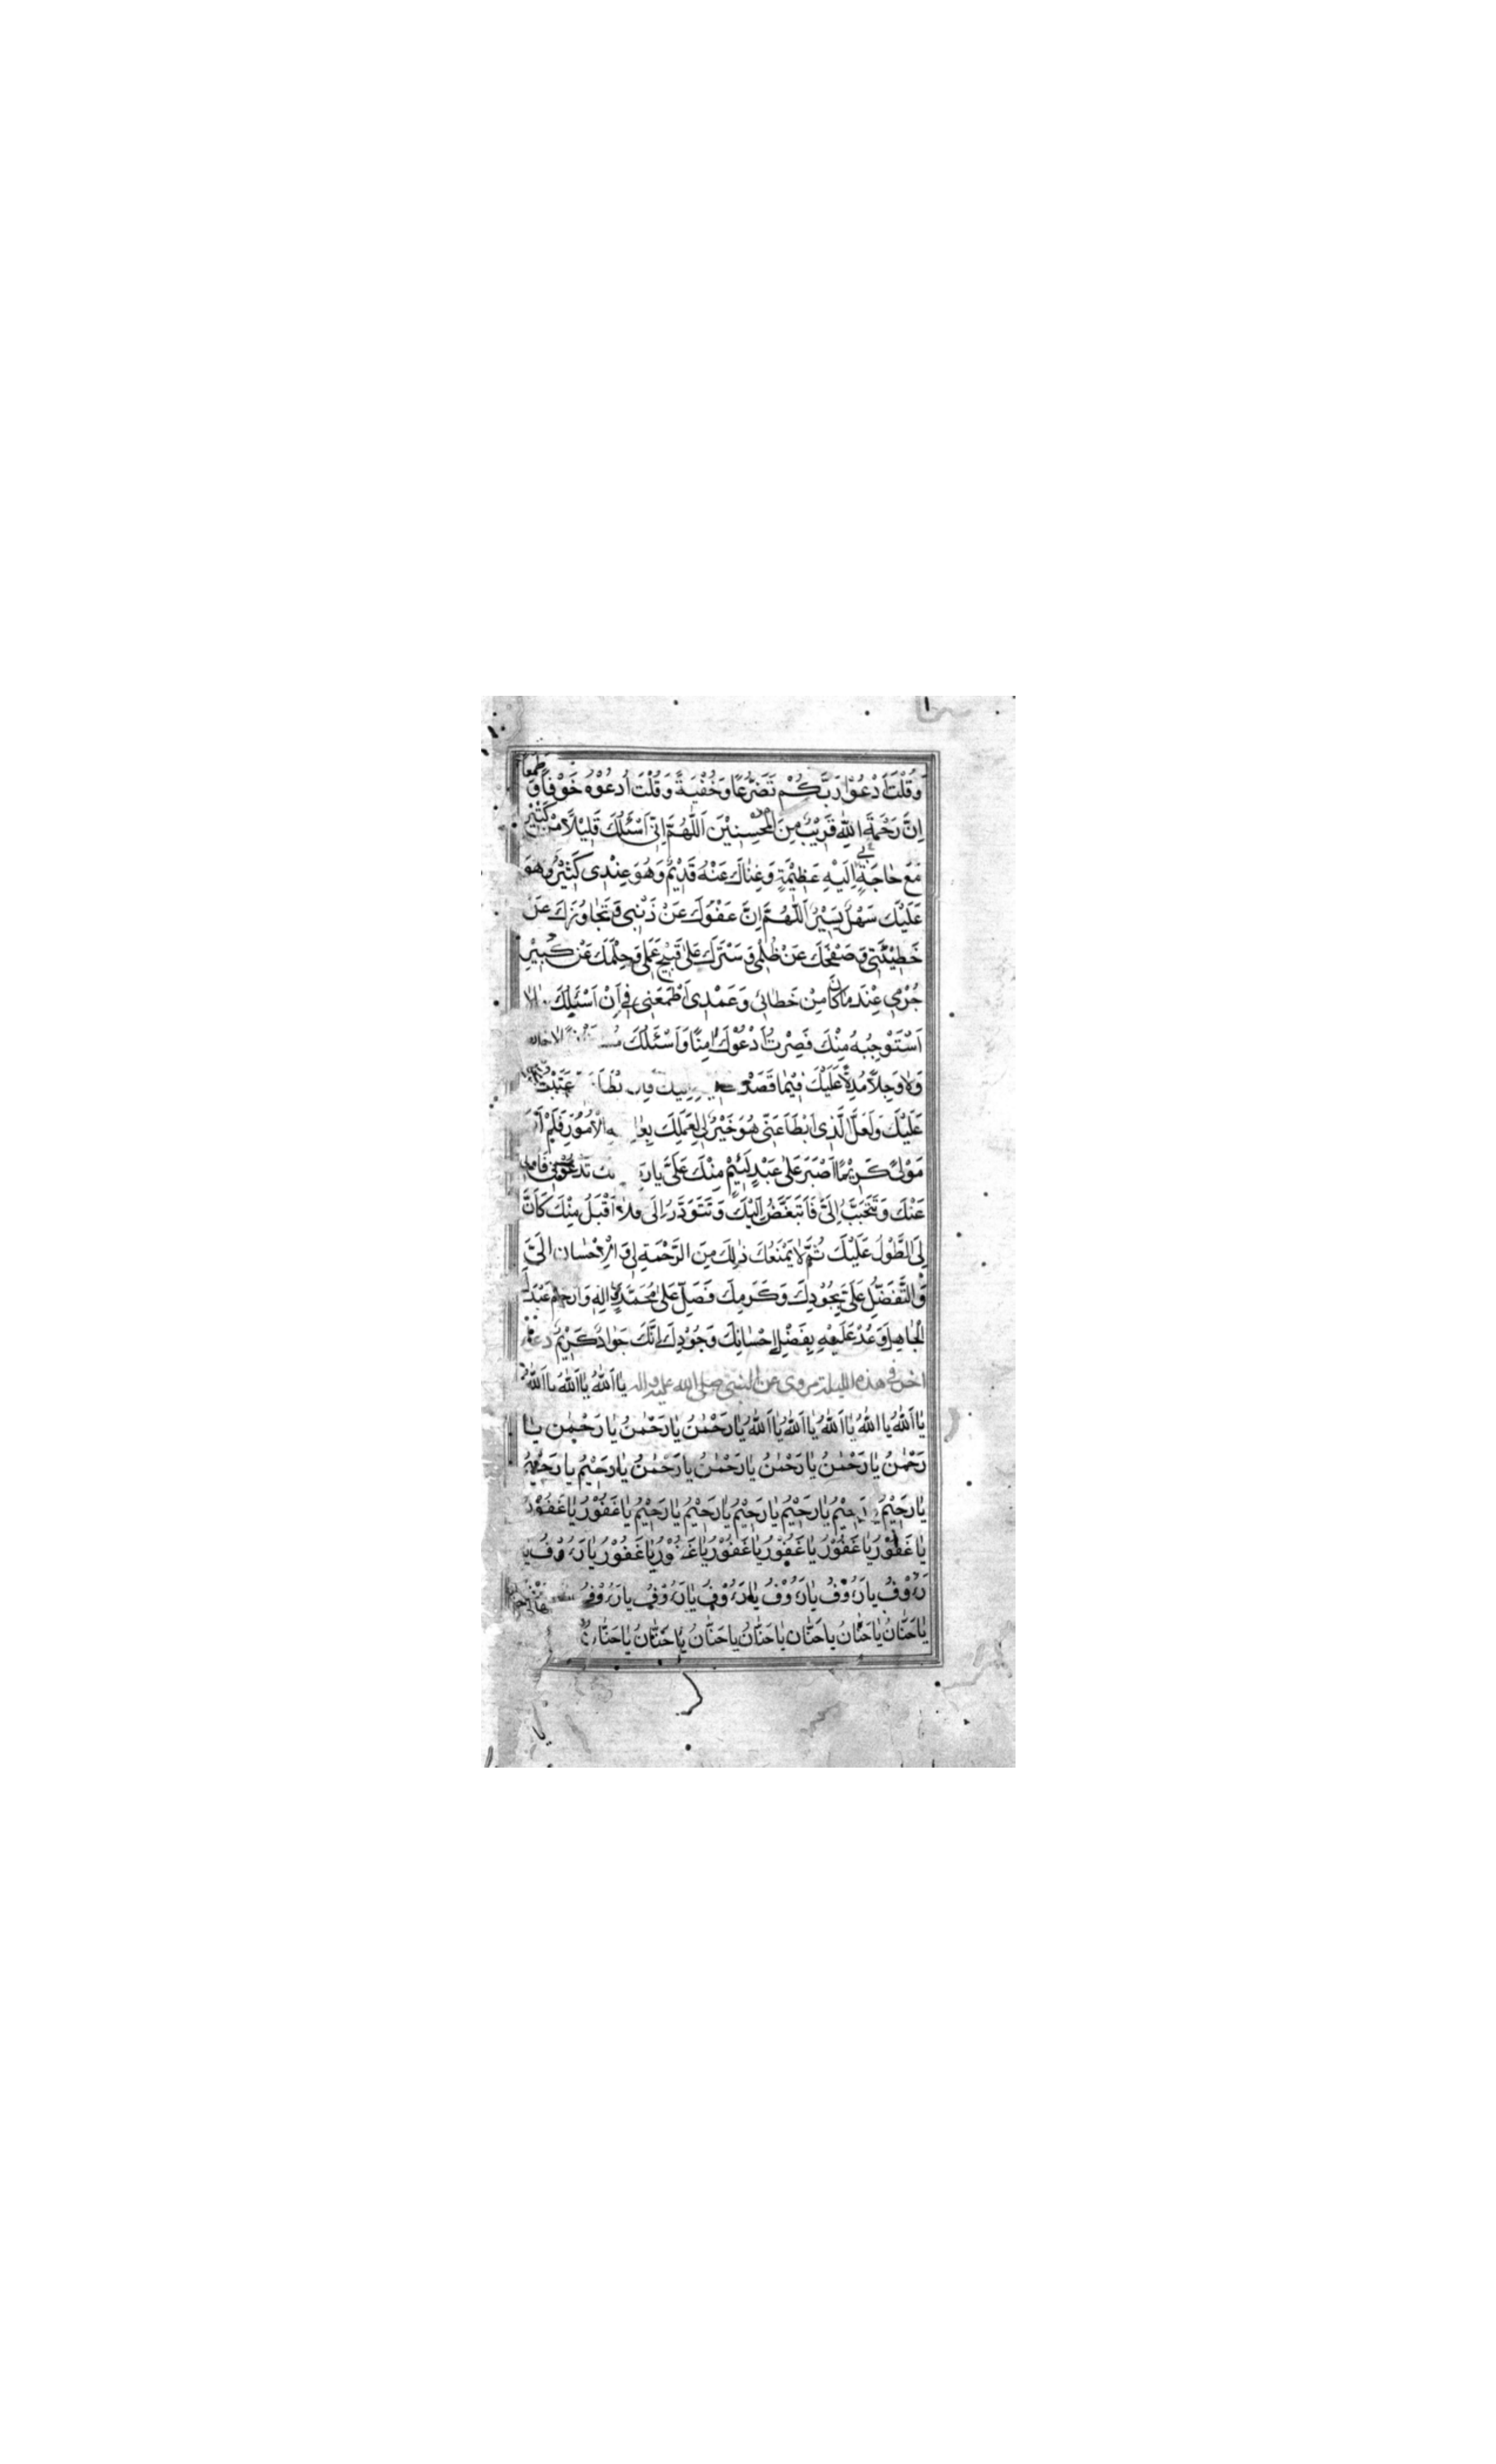 وَقُلْتَ اُدْعُوا رَبَّكُمْ تَضَرُّعًا وَخُفْيَةً وَقُلْتَ ادْعُوْهُ خَوْفًا وَ طَمَعًا
اِنَّ رَحْمَةَ اللهِ قَرِيْبٌ مِنَ الْمُحْسِنِيْنَ اَللّٰهُمَّ اِنّٖى اَسْئَلُكَ قَلِيْلًا مِنْ كَثِيْرٍ
مَعَ حٰاجَةٍ بى اِلَيْهِ عَظِيْمَةٍ وَغِنٰاكَ عَنْهُ قَدِيْمٌ وَهُوَ عِنْدِى كَثِيْرٌ وَهُوَ
عَلَيْكَ سَهْلٌ يَسِيْرٌ اَللّٰهُمَّ اِنَّ عَفْوَكَ عَنْ ذَنْبِى وَ تَجٰاوُزَكَ عَنْ
خَطِيْئَتِى وَ صَفْحَكَ عَنْ ظُلْمِى وَ سَتْرَكَ عَلٰى قَبِيْحِ عَمَلِى وَحِلْمَكَ عَنْ كَبِيْرِ
جُرْمِى عِنْدَ مٰا كٰانَ مِنْ خَطٰائِى وَعَمْدِى اَطْمَعَنِى فِى اَنْ اَسْئَلَكَ مٰا لٰا
اَسْتَوْجِبُهُ مِنْكَ فَصِرْتُ اَدْعُوْكَ اٰمِنًا وَاَسْئَلُكَ لاخائفا
وَلٰا وَجِلًا مُدِلًّا عَلَيْكَ فِيْمٰا قَصَدْتُ عَتَبْتُ
عَلَيْكَ وَلَعَلَّ الَّذِى اَبْطَأَ عَنّٖى هُوَ خَيْرٌ لِى لِعِلْمِكَ بِعٰا الْاُمُوْرِ فَلَمْ اَرَ
مَوْلًى كَرِيْمًا اَصْبَرَ عَلٰى عَبْدٍ لَئِيْمٍ مِنْكَ عَلَىَّ يٰا رَبِّ تَدْعُوْنِى فَاُوَلِّى
عَنْكَ وَتَتَحَبَّبُ اِلَىَّ فَاَتَبَغَّضُ اِلَيْكَ وَتَتَوَدَّدُ اِلَىَّ فَلٰا اَقْبَلُ مِنْكَ كَاَنَّ
لِىَ الطَّوْلَ عَلَيْكَ ثُمَّ لٰا يَمْنَعُكَ ذٰلِكَ مِنَ الرَّحْمَةِ لِى وَ الْاِحْسٰانِ اِلَىَّ
وَالتَّفَضُّلِ عَلَىَّ بِجُوْدِكَ وَكَرَمِكَ فَصَلِّ عَلٰى مُحَمَّدٍ وَاٰلِهٖ وَارْحَمْ عَبْدَكَ
الْجٰاهِلَ وَعُدْ عَلَيْهِ بِفَضْلِ اِحْسٰانِكَ وَجُوْدِكَ اِنَّكَ جَوٰادٌ كَرِيْمٌ دعاء
اخر فى هذه الليلة مروى عن النبى صلى الله عليه واله يٰا اَللهُ يٰا اَللهُ يٰا اَللهُ
يٰا اَللهُ يٰا اَللهُ يٰا اَللهُ يٰا اَللهُ يٰا اَللهُ يٰا رَحْمٰنُ يٰا رَحْمٰنُ يٰا رَحْمٰنُ يٰا
رَحْمٰنُ يٰا رَحْمٰنُ يٰا رَحْمٰنُ يٰا رَحْمٰنُ يٰا رَحْمٰنُ يٰا رَحِيْمُ يٰا رَحِيْمُ
يٰا رَحِيْمُ يٰا رَحِيْمُ يٰا رَحِيْمُ يٰا رَحِيْمُ يٰا رَحِيْمُ يٰا رَحِيْمُ يٰا غَفُوْرُ يٰا غَفُوْرُ
يٰا غَفُوْرُ يٰا غَفُوْرُ يٰا غَفُوْرُ يٰا غَفُوْرُ يٰا غَفُوْرُ يٰا غَفُوْرُ يٰا رَءُوْفُ يٰا
رَءُوْفُ يٰا رَءُوْفُ يٰا رَءُوْفُ يٰا رَءُوْفُ يٰا رَءُوْفُ يٰا رَءُوْفُ
يٰا حَنّٰانُ يٰا حَنّٰانُ يٰا حَنّٰانُ يٰا حَنّٰانُ يٰا حَنّٰانُ يٰا حَنّٰانُ يٰا حَنّٰانُ